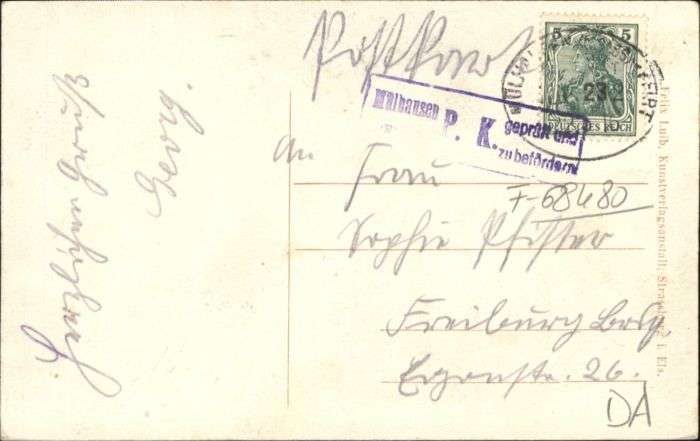 Herzlichen
Georg.
Postkart
5 5
DEUTSCHES REICH
23
Mülhausen
P. K.
geprüft und
zu befördern
An
Frau
F-68480
Sophie Pfister
Freiburg Brsg
Egonstr. 26.
DA
Felix Luib, Kunstverlagsanstalt, Strassburg i. Els.